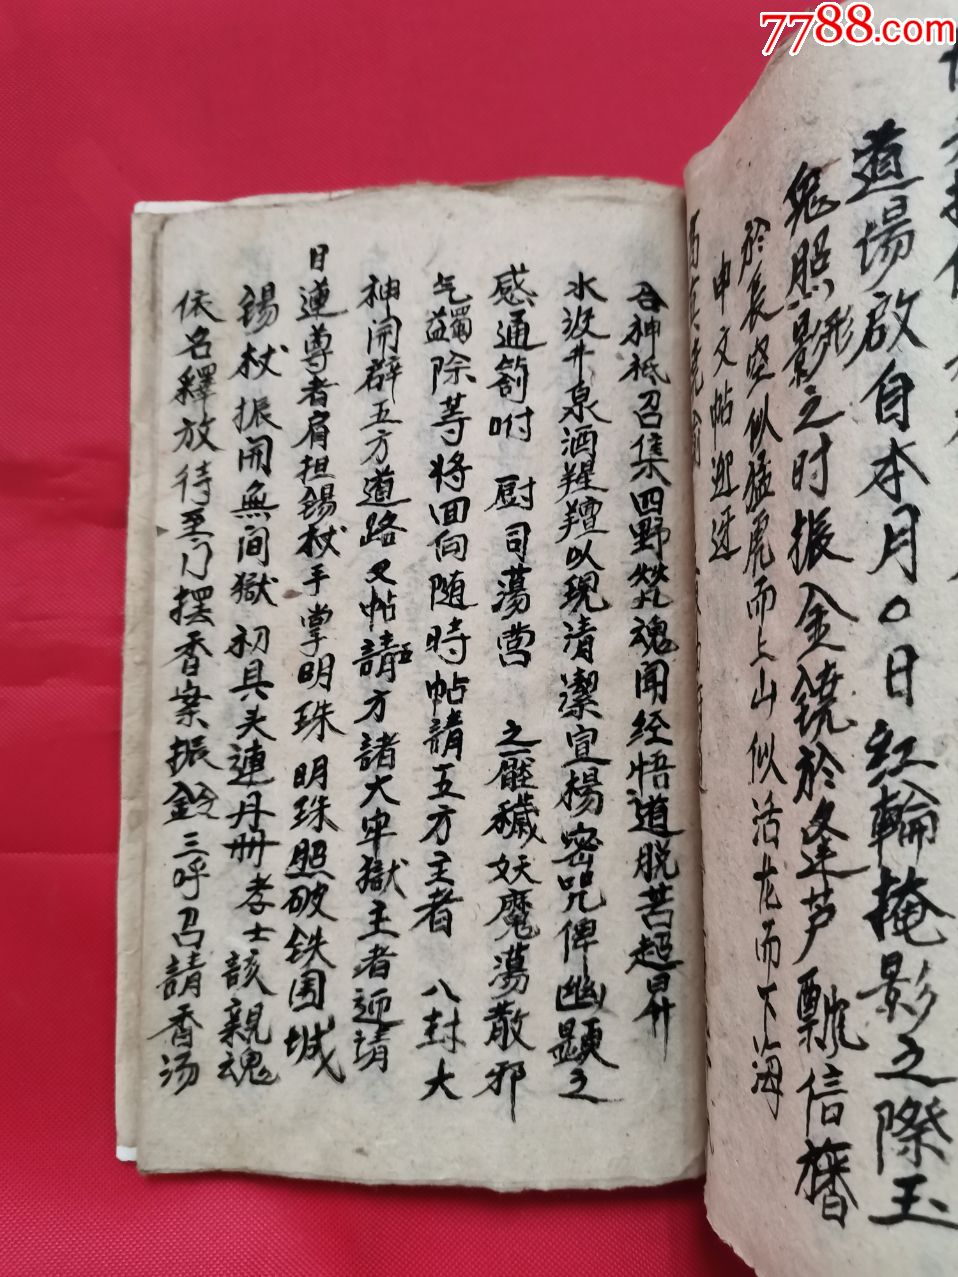 7788.com
道場啟自本月〇日紅輪掩影之際玉
兔照形影之时振金鐃於逢芦飄信
於長空似猛虎而上山似活龙而下海
申文帖迎迓
合神祗召集四野焭魂聞经悟道脱苦超昇
水汲井泉酒羶以現清潔宣楊密咒俾幽顕之
感通箚咐 厨司蕩营 之魘穢妖魔蕩散邪
气蠲除等将回向随時帖請五方主者 八封大
神開辟五方道路又帖請五方諸大牢獄主者迎請
日蓮尊者肩担錫杖手掌明珠明珠照破铁围城
錫杖振開無間獄初具夫連丹册孝士該親魂
依名釋放待至门摆香案振鈴三呼召請香汤